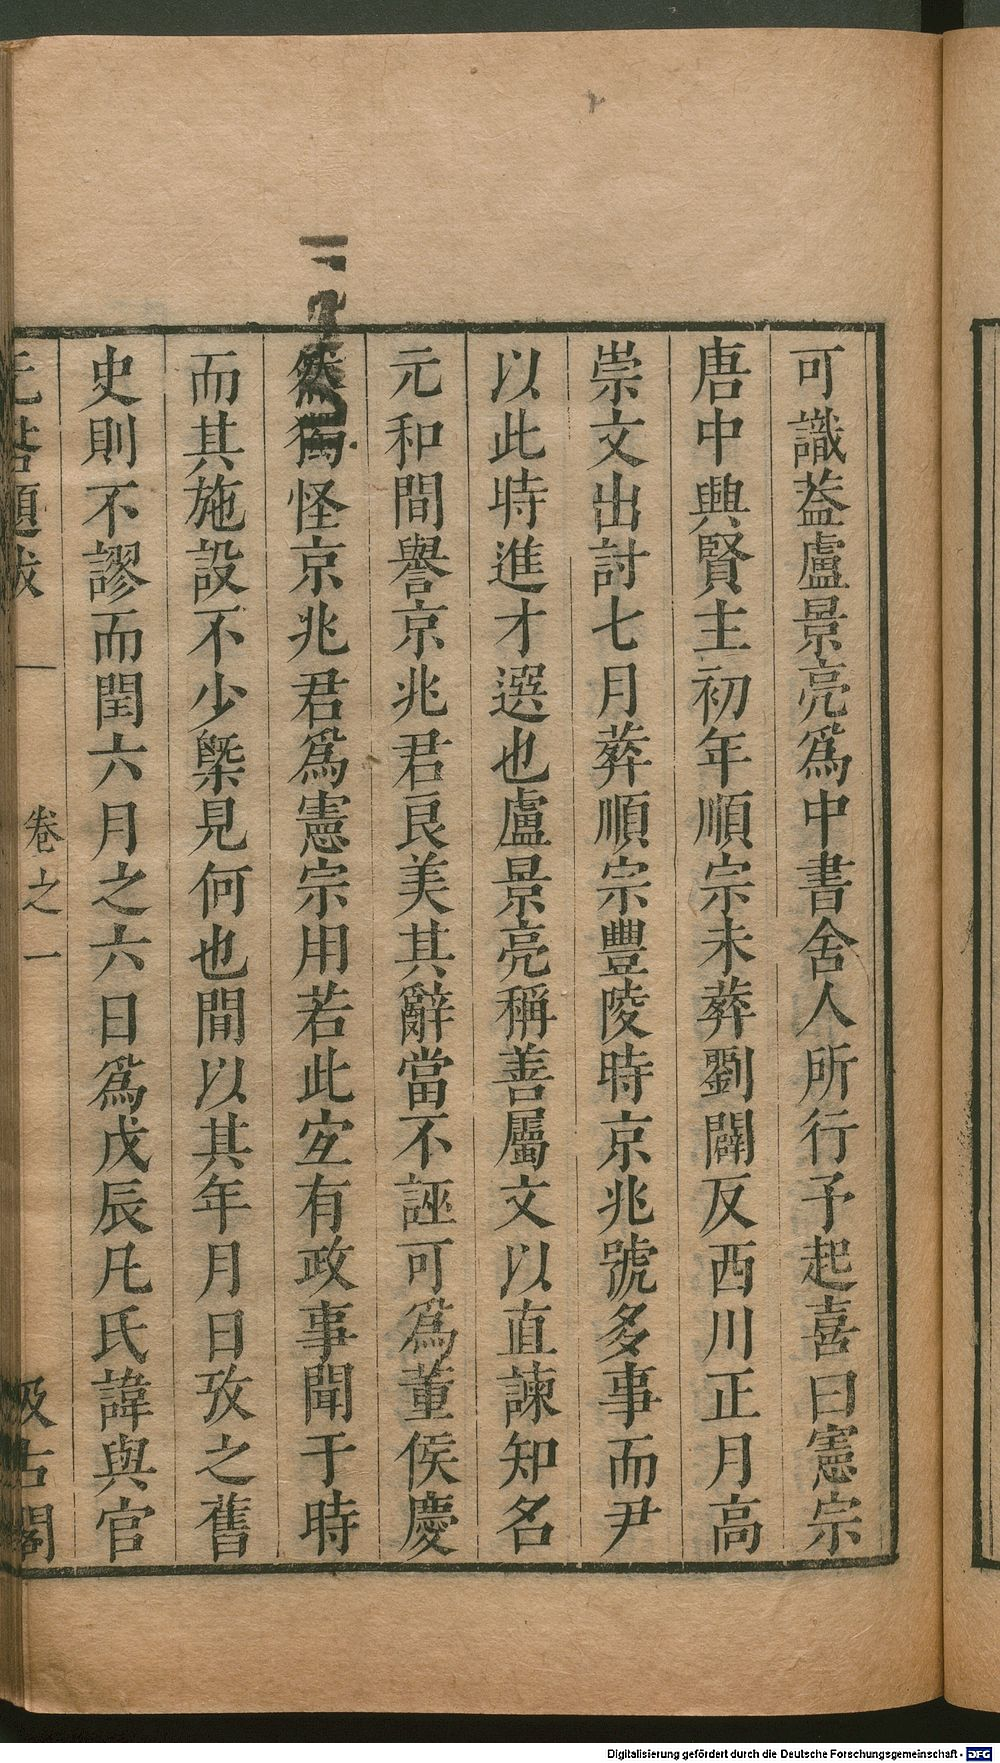 可識葢盧景亮爲中書舍人所行予起喜曰憲宗
唐中興賢主初年順宗未葬劉闢反西川正月高
崇文出討七月葬順宗豐陵時京兆號多事而尹
以此時進才選也盧景亮稱善屬文以直諫知名
元和間譽京兆君良美其辭當不誣可爲董侯慶
然獨怪京兆君爲憲宗用若此宐有政事聞于時
而其施設不少槩見何也間以其年月日攷之舊
史則不謬而閏六月之六日爲戊辰凡氏諱與官
卷之一
汲古閣
Digitalisierung gefördert durch die Deutsche Forschungsgemeinschaft - DFG